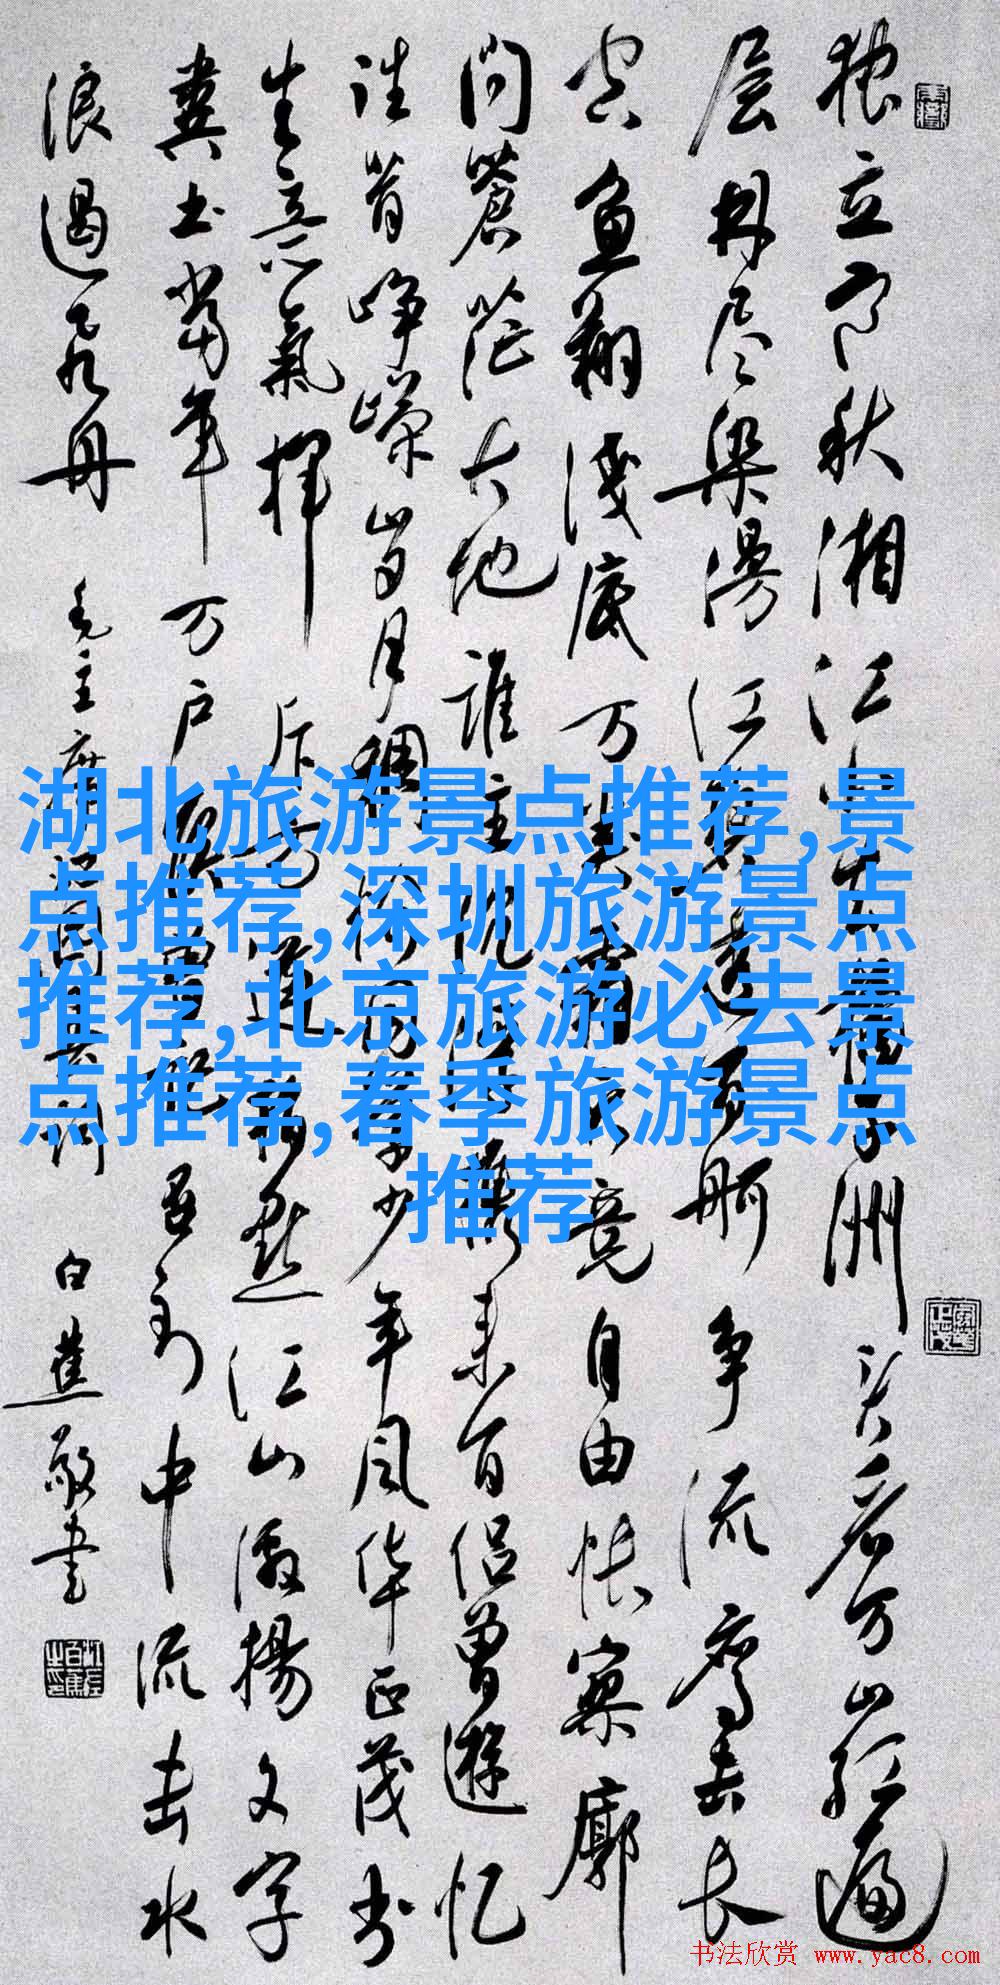 独立寒秋湘江北去橘子洲头看万山红遍
层林尽染漫江碧透百舸争流鹰击长
空鱼翔浅底万类霜天竞自由怅寥廓
问蒼茫大地谁主沉浮携来百侣曾遊忆
往昔峥嵘岁月稠恰同学少年风华正茂书
生意氣挥斥方遒指点江山激揚文字
粪土当年万户侯曾记否到中流击水
浪遏飞舟 毛主席沁园春词 白蕉敬书
湖北旅游景点推荐,景
点推荐,深圳旅游景点
推荐,北京旅游必去景
点推荐,春季旅游景点
推荐
书法欣赏 www.yac8.com